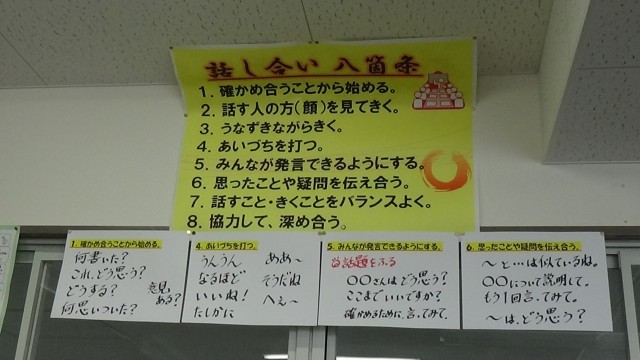 話し合い 八箇条
1. 確かめ合うことから始める。
2. 話す人の方(顔)を見てきく。
3. うなずきながらきく。
4. あいづちを打つ。
5. みんなが発言できるようにする。
6. 思ったことや疑問を伝え合う。
7. 話すこと・きくことをバランスよく。
8. 協力して、深め合う。
1. 確かめ合うことから始める。
何書いた?
これ、どう思う?
どうする?
何思いついた?
意見
ある?
4. あいづちを打つ。
うんうん
なるほど
いいね!
たしかに
ああ~
そうだね
へぇ~
5. みんなが発言できるようにする。
話題をふる
〇〇さんはどう思う?
ここまでいいですか?
確かめるために、言ってみて。
6. 思ったことや疑問を伝え合う。
~と…は似ているね。
〇〇について説明して。
もう1回言ってみて。
~は、どう思う?